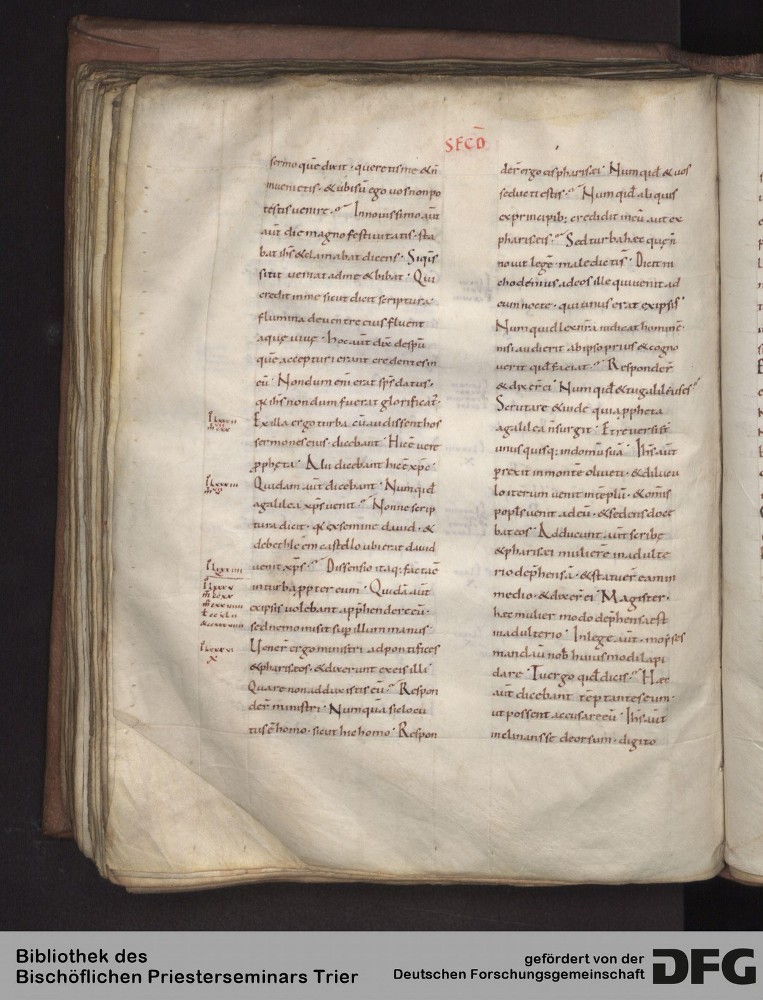 SECD̄
sermo quē dixit · queretis me & n̄
inuenietis · & ubi sū ego uos non po
testis uenire · In nouissimo aūt
aūt die magno festiuitatis · sta
bat ih̄s & clamabat dicens · Siquis
sitit ueniat ad me & bibat · Qui
credit in me sicut dicit scriptura
flumina de uentre eius fluent
aquę uiuę · hoc aūt dix̄ de sp̄u
quē accepturi erant credentes in
eū · Nondum eni erat sp̄s datus ·
q̄ ih̄s nondum fuerat glorificat̄ ·
Ex illa ergo turba cū audissent hos
sermones eius · dicebant · Hic ē uere
ꝓpheta · Alii dicebant hic ē xp̄c ·
Quidam aūt dicebant · Numquid
a galilea xp̄s uenit · Nonne scrip
tura dicit · q̄ ex semine dauid · &
de bethleem castello ubi erat dauid
uenit xp̄s · Dissensio itaq; facta ē
in turba ꝓpter eum · Quidā aūt
ex ipsis uolebant app̄hendere eū ·
sed nemo misit sup̄ illum manus ·
Uener̄ ergo ministri ad pontifices
& phariseos · & dixerunt eis illi
Quare non adduxistis eū · Respon
der̄ ministri · Numquā sic locu
tus ē homo · sicut hic homo · Respon
der̄ ergo eis pharisei · Numquid & uos
seducti estis · Numquid aliquis
ex principib; credidit in eū aut ex
phariseis · Sed turba hęc quę n̄
nouit legē · maledicti s̄ · Dicit ni
chodemus ad eos ille qui uenit ad
eum nocte · qui unus erat ex ipsis ·
Numquid lex n̄ra iudicat hominē ·
nisi audierit ab ipso prius & cogno
uerit quid faciat · Responder̄
& dixer̄ ei · Numquid & tu galileus es
Scrutare & uide quia ꝓpheta
a galilea n̄ surgit · Et reuersi s̄
unus quisq; in domū suā · Ih̄s aūt
prexit in monte oliueti · & dilucu
lo iterum uenit in tēplū · & omīs
popl̄s uenit ad eū · & sedens doce
bat eos · Adducunt aūt scribę
& pharisei mulierē in adulte
rio dep̄hensā · & statuer̄ eam in
medio · & dixer̄ ei · Magister ·
hęc mulier modo dep̄hensa est
in adulterio · In lege aūt · moyses
mandau̅ nob̄ huius modi lapi
dare · Tu ergo quid dicis · Hęc
aūt dicebant tēptantes eum ·
ut possent accusare eū · Ih̄s aūt
inclinans se deorsum · digito
Bibliothek des
Bischöflichen Priesterseminars Trier
gefördert von der
Deutschen Forschungsgemeinschaft
DFG